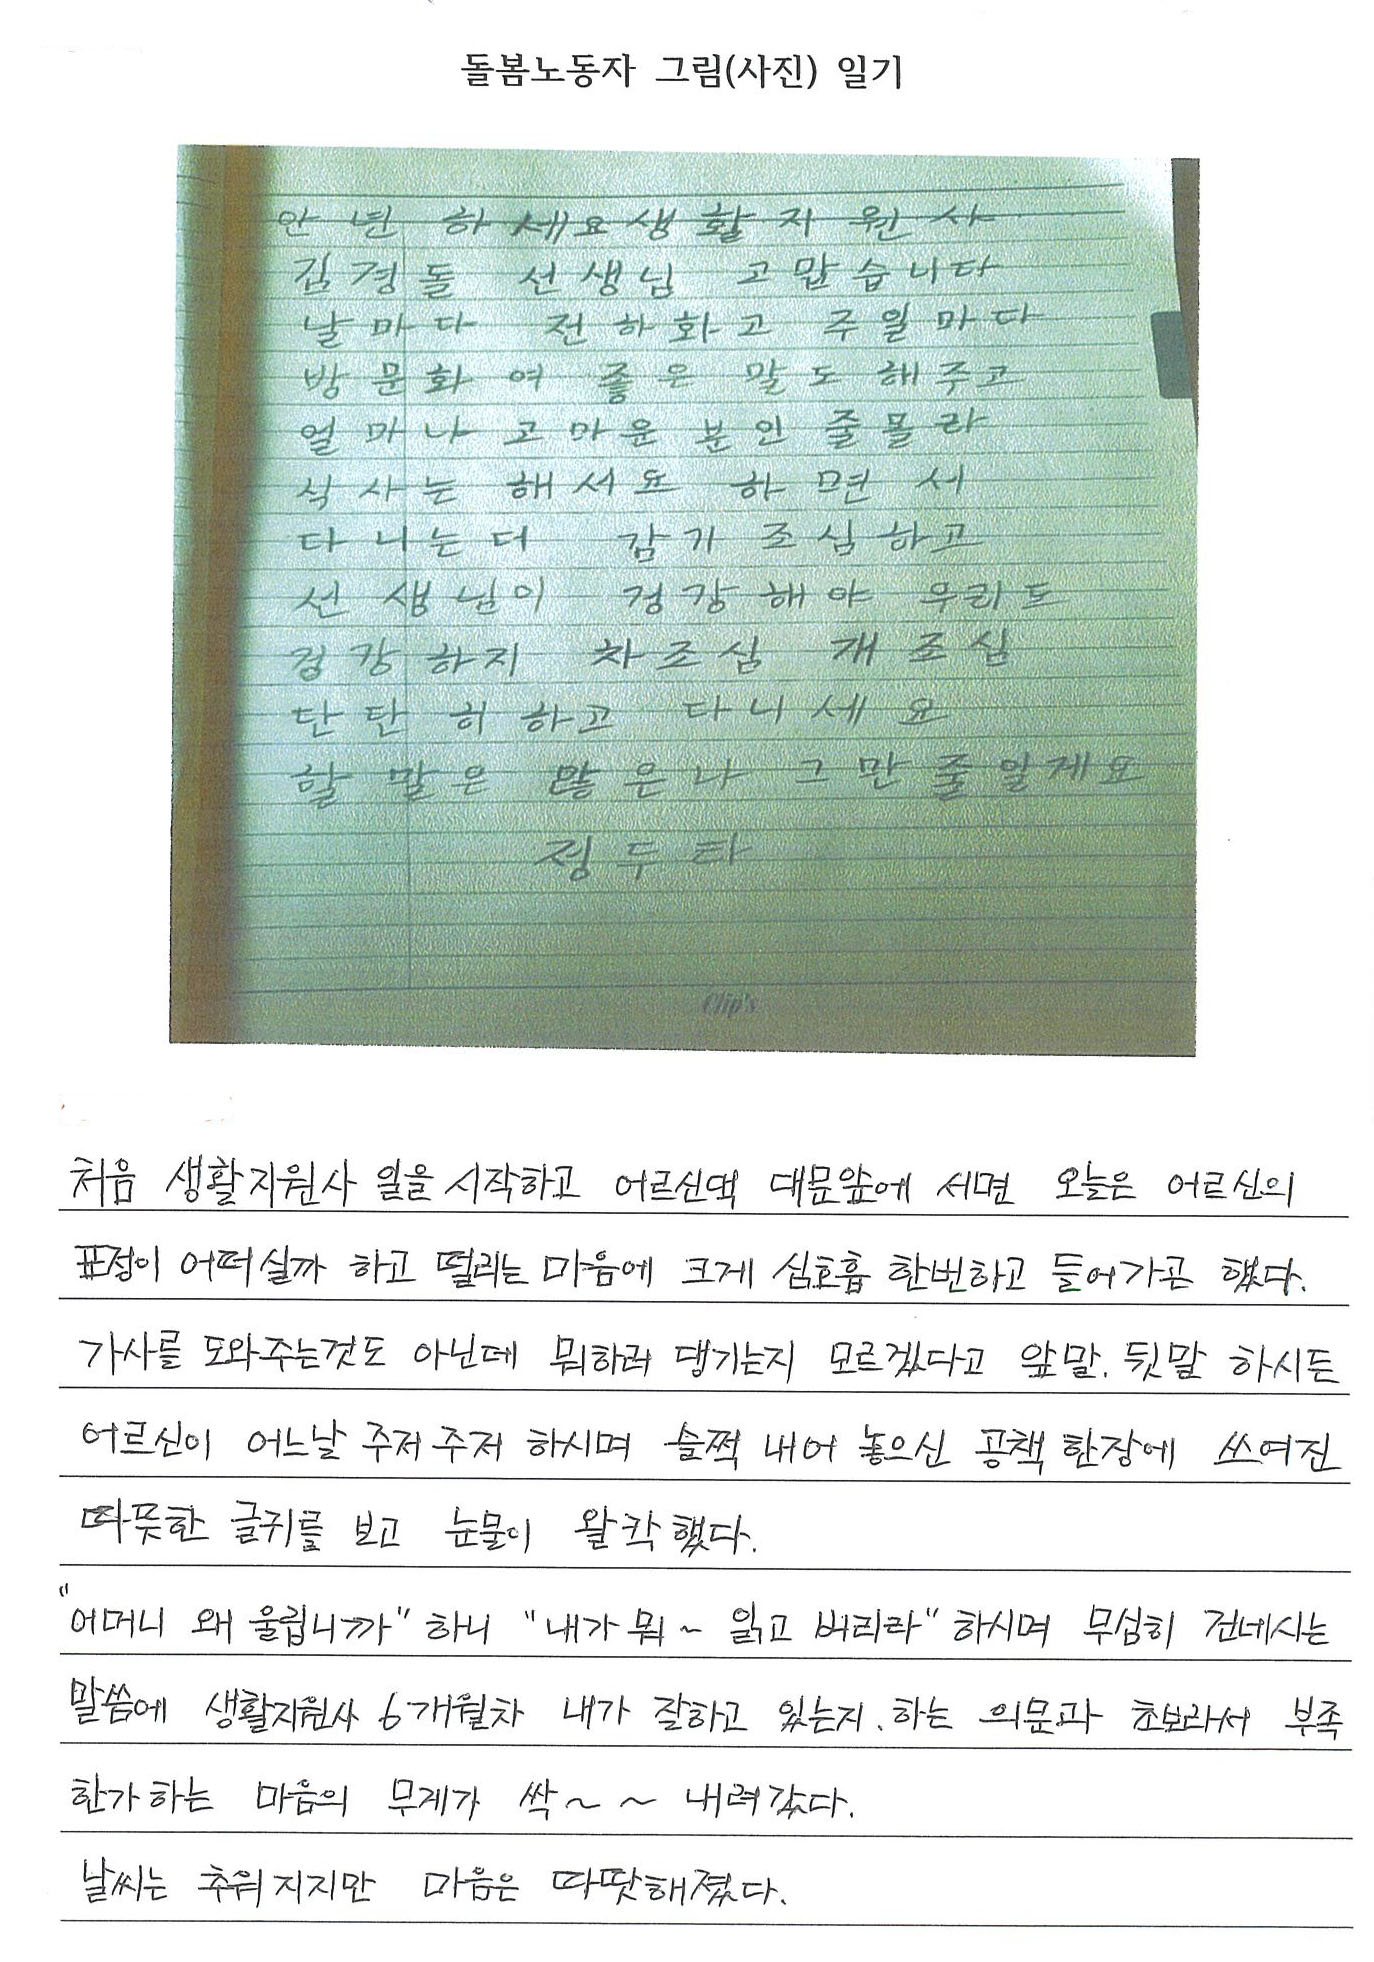 돌봄노동자 그림(사진) 일기
안년 하세요 생활지원사
김경돌 선생님 고맙습니다
날마다 전하화고 주일마다
방문화여 좋은 말도 해주고
얼마나 고마운 분인 줄몰라
식사는 해서요 하면서
다니는더 감기 조심하고
선생님이 겅강해야 우리도
겅강하지 차조심 개조심
단단히하고 다니세요
할말은 많은나 그만줄일게요
정두타
Clip's
처음 생활지원사 일을 시작하고 어르신댁 대문앞에 서면 오늘은 어르신의
표정이 어떠실까 하고 떨리는 마음에 크게 심호흡 한번하고 들어가곤 했다.
가사를 도와주는것도 아닌데 뭐하러 댕기는지 모르겠다고 앞말. 뒷말 하시든
어르신이 어느날 주저주저 하시며 슬쩍 내어 놓으신 공책 한장에 쓰여진
따뜻한 글귀를 보고 눈물이 왈칵했다.
"어머니 왜 울립니까" 하니 "내가 뭐~ 읽고 버리라" 하시며 무심히 건네시는
말씀에 생활지원사 6개월차 내가 잘하고 있는지. 하는 의문과 초보라서 부족
한가하는 마음의 무게가 싹~~ 내려갔다.
날씨는 추워지지만 마음은 따땃해졌다.